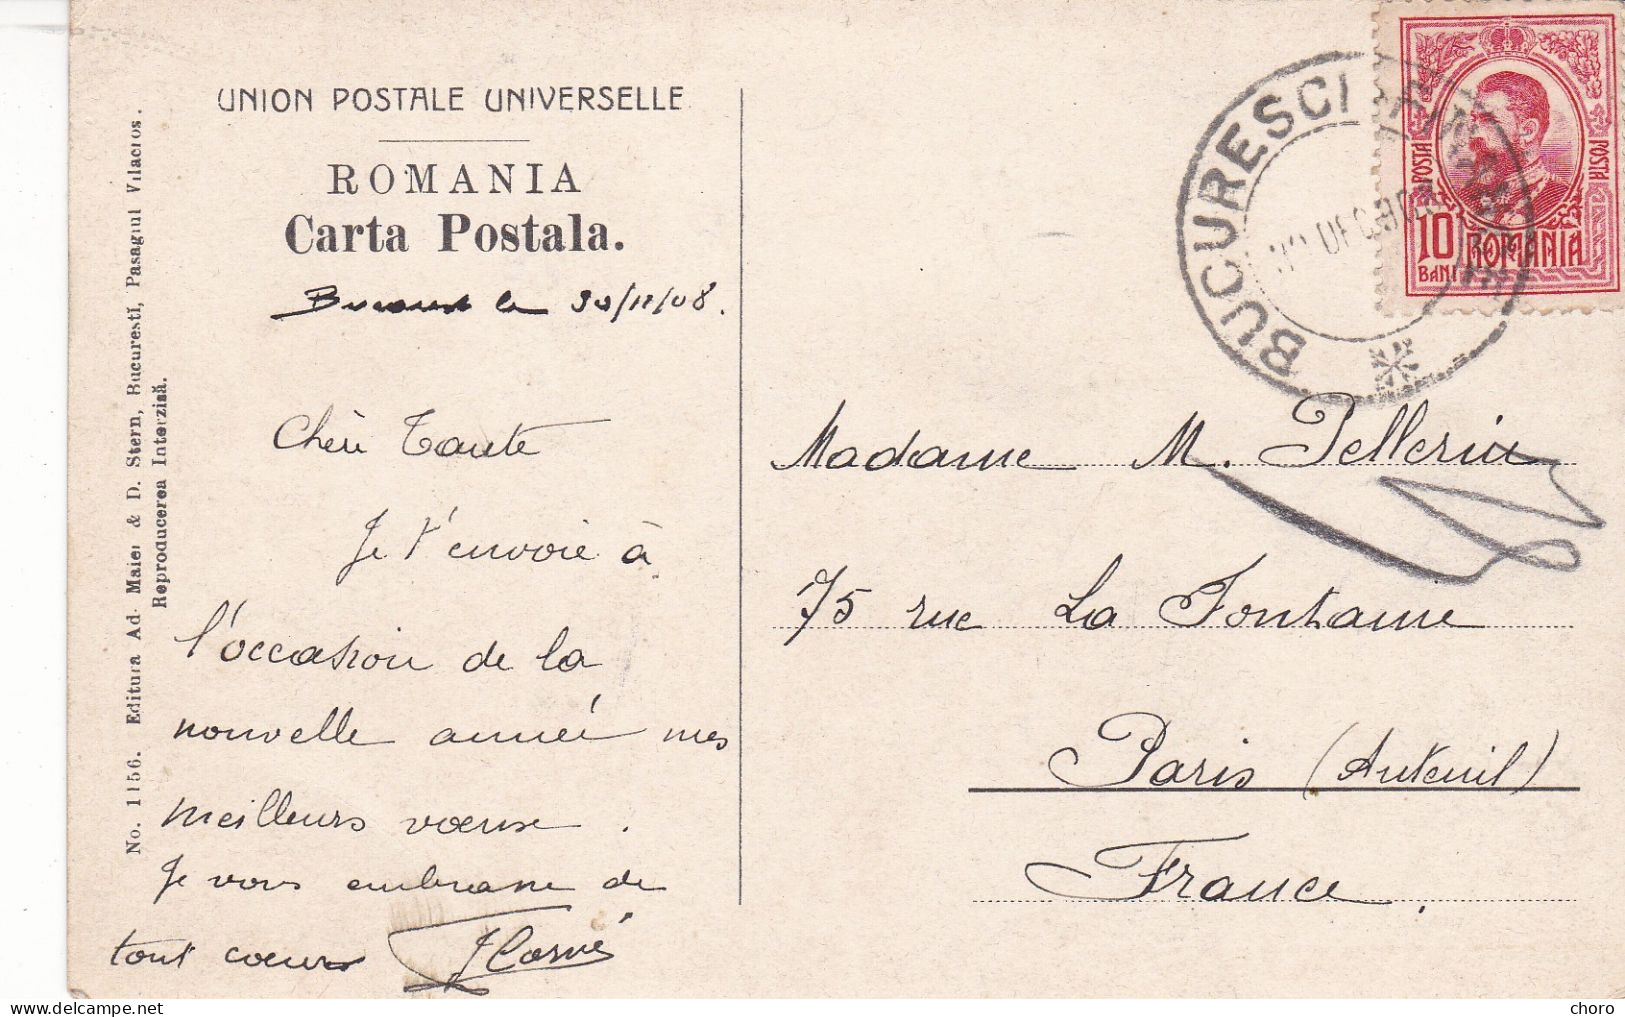 UNION POSTALE UNIVERSELLE
ROMANIA
Carta Postala.
le 30/12/08.
Chère Tante
Je t'envoie à
l'occasion de la
nouvelle année mes
meilleurs voeux.
Je vous embrasse de
tout coeur
No. 1156. Editura Ad. Maier & D. Stern, Bucuresti, Pasagiul Vilacros.
Reproducerea Interzisă.
BUCURESCI
DEC 908
POSTA
POSTA
10
BANI
ROMANIA
Madame M. Pellerin
75 rue La Fontaine
Paris (Auteuil)
France.
delcampe.net
choro